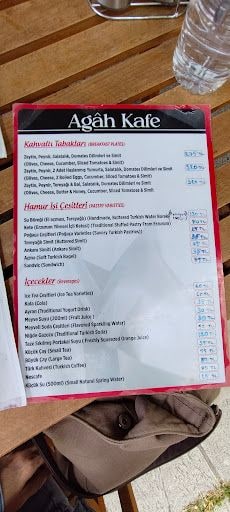 Agâh Kafe
Kahvaltı Tabakları (BREAKFAST PLATES)
Zeytin, Peynir, Salatalık, Domates Dilimleri ve Simit
(Olives, Cheese, Cucumber, Sliced Tomatoes & Simit)
Zeytin, Peynir, 2 Adet Haşlanmış Yumurta, Salatalık, Domates Dilimleri ve Simit
(Olives, Cheese, 2 Boiled Eggs, Cucumber, Sliced Tomatoes & Simit)
Zeytin, Peynir, Tereyağı & Bal, Salatalık, Domates Dilimleri ve Simit
(Olives, Cheese, Butter & Honey, Cucumber, Sliced Tomatoes & Simit)
Hamur İşi Çeşitleri (PASTRY VARIETIES)
Su Böreği (El açması, Tereyağlı) (Handmade, Buttered Turkish Water Borek)
Kete (Erzurum Yöresel İçli Ketesi) (Traditional Stuffed Pastry From Erzurum)
Poğaça Çeşitleri (Poğaca Varieties) (Savory Turkish Pastries)
Tereyağlı Simit (Buttered Simit)
Ankara Simiti (Ankara Simit)
Açma (Soft Turkish Bagel)
Sandviç (Sandwich)
İçecekler (Beverages)
Ice Tea Çeşitleri (Ice Tea Varieties)
Kola (Cola)
Ayran (Traditional Yogurt Drink)
Meyve Suyu (200ml) (Fruit Juice)
Meyveli Soda Çeşitleri (Flavored Sparkling Water)
Niğde Gazozu (Traditional Turkish Soda)
Taze Sıkılmış Portakal Suyu (Freshly Squeezed Orange Juice)
Küçük Çay (Small Tea)
Büyük Çay (Large Tea)
Türk Kahvesi (Turkish Coffee)
Nescafe
Küçük Su (500ml) (Small Natural Spring Water)